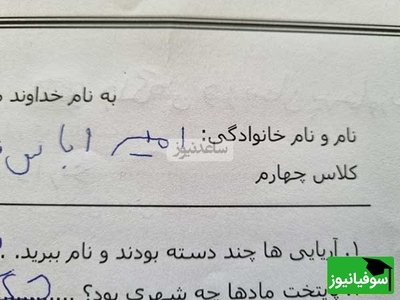 به نام خداوند
نام و نام خانوادگی: امیر اباس
ساعدنیوز
کلاس چهارم
۱. آریایی ها چند دسته بودند و نام ببرید.
پایتخت مادها چه شهری بود؟
سوفیانیوز